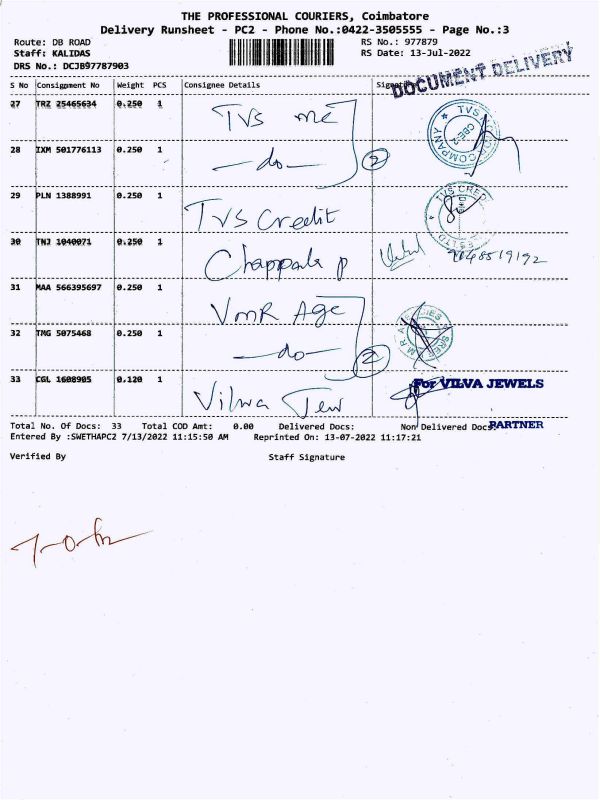 THE PROFESSIONAL COURIERS, Coimbatore
Delivery Runsheet - PC2 - Phone No.:0422-3505555 - Page No.:3
Route: DB ROAD RS No.: 977879
Staff: KALIDAS RS Date: 13-Jul-2022
DRS No.: DCJB97787903
DOCUMENT DELIVERY
S No Consignment No Weight PCS Consignee Details
27 TRZ 25465634 0.250 1 TVS mc
28 IXM 501776113 0.250 1 -do- 2
29 PLN 1388991 0.250 1 TVS Credit
30 TNJ 1040071 0.250 1 P
31 MAA 566395697 0.250 1 VMR Age
32 TMG 5075468 0.250 1 -do- 2
33 CGL 1608905 0.120 1 Vilva Jew
For VILVA JEWELS
PARTNER
Total No. Of Docs: 33 Total COD Amt: 0.00 Delivered Docs: Non Delivered Docs:
Entered By :SWETHAPC2 7/13/2022 11:15:50 AM Reprinted On: 13-07-2022 11:17:21
Verified By Staff Signature